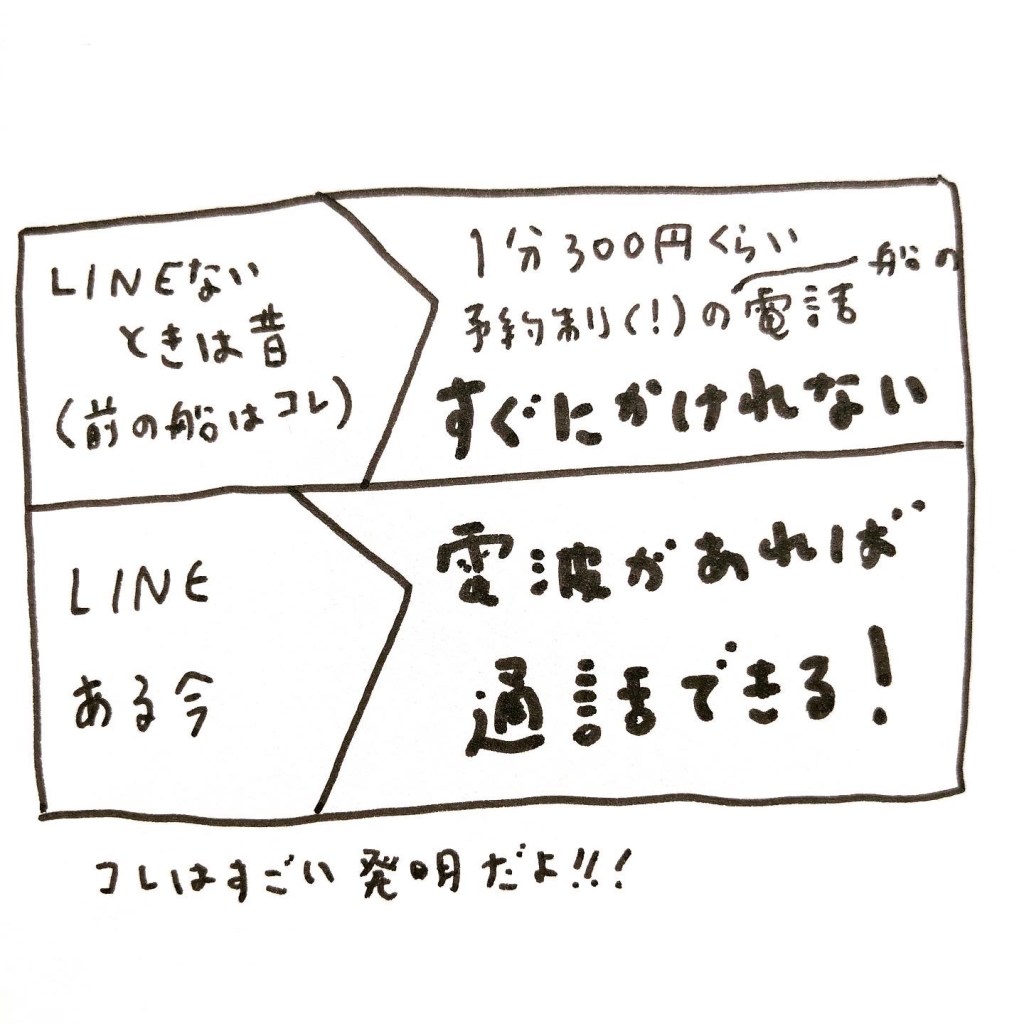 LINEない
ときは昔
(前の船はコレ)
1分300円くらい
船の
予約制(!)の電話
すぐにかけれない
LINE
ある今
電波があれば
通話できる!
コレはすごい発明だよ!!!